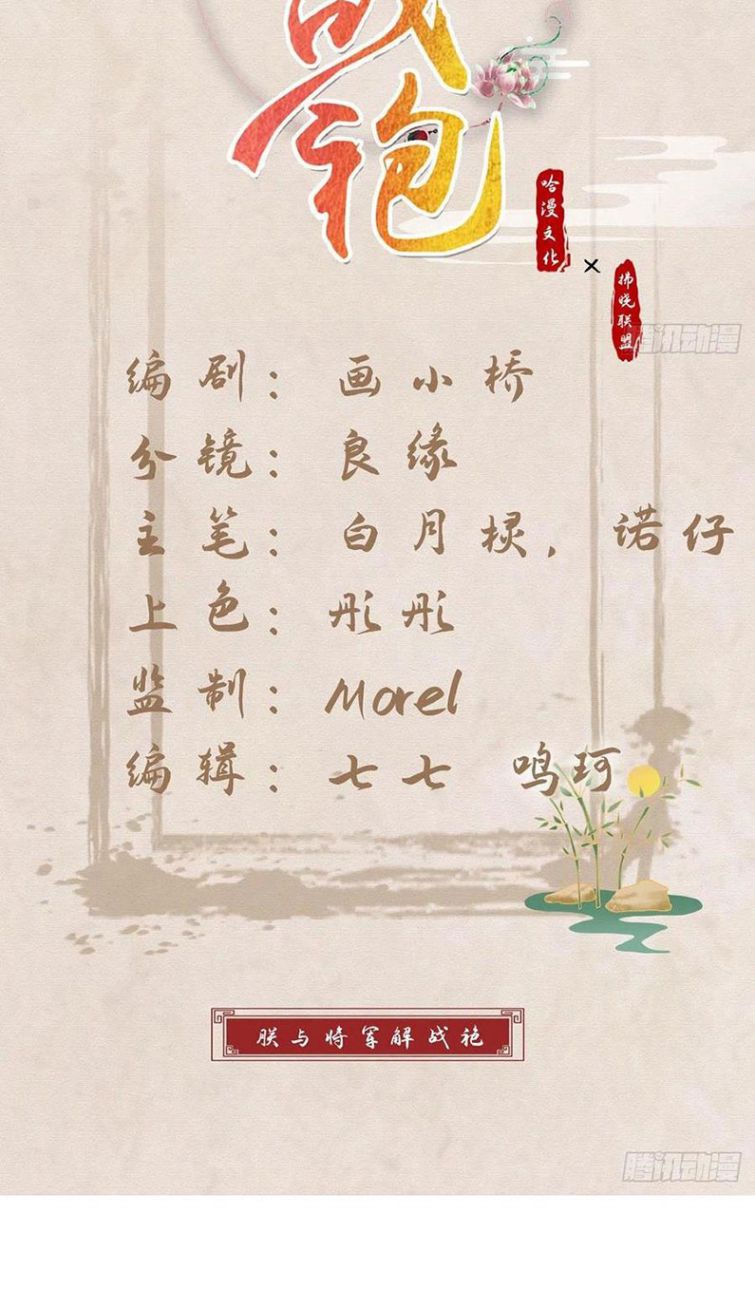 战袍
哈漫文化
×
拂晓联盟
腾讯动漫
编剧：画小桥
分镜：良缘
主笔：白月椂，诺仔
上色：彤彤
监制：Morel
编辑：七七 鸣珂
朕与将军解战袍
腾讯动漫